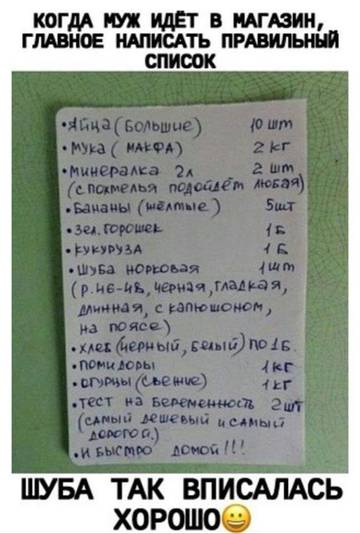 КОГДА МУЖ ИДЁТ В МАГАЗИН,
ГЛАВНОЕ НАПИСАТЬ ПРАВИЛЬНЫЙ
СПИСОК
•Яйца (Большие) 10 шт
•Мука ( МАКФА) 2 кг
•Минералка 2л 2 шт
(с похмелья подойдёт любая)
•Бананы (жёлтые) 5шт
•Зел. горошек 1 Б
•Кукуруза 1 Б
•Шуба норковая 1шт
(р. 46-48, чёрная, гладкая,
длинная, с капюшоном,
на поясе)
•хлеб (чёрный, белый) по 1Б.
•помидоры 1кг
•огурцы (свежие) 1кг
•тест на беременность 2шт
(самый дешевый и самый
дорогой)
•и быстро домой!!!
ШУБА ТАК ВПИСАЛАСЬ
ХОРОШО😀